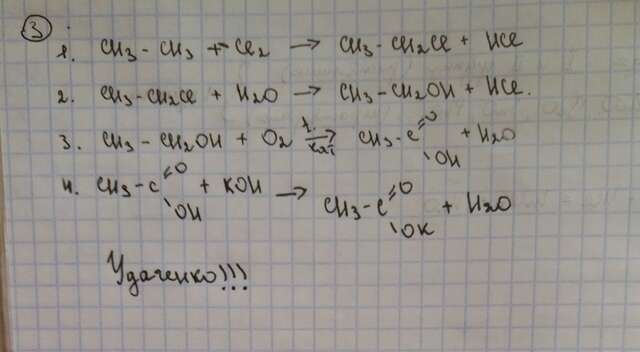 ③
1. CH3 - CH3 + Cl2 → CH3 - CH2Cl + HCl
2. CH3 - CH2Cl + H2O → CH3 - CH2OH + HCl.
3. CH3 - CH2OH + O2 t, кат ⇌ CH3 - C =O OH + H2O
4. CH3 - C =O OH + KOH → CH3 - C =O OK + H2O
Удаченко!!!